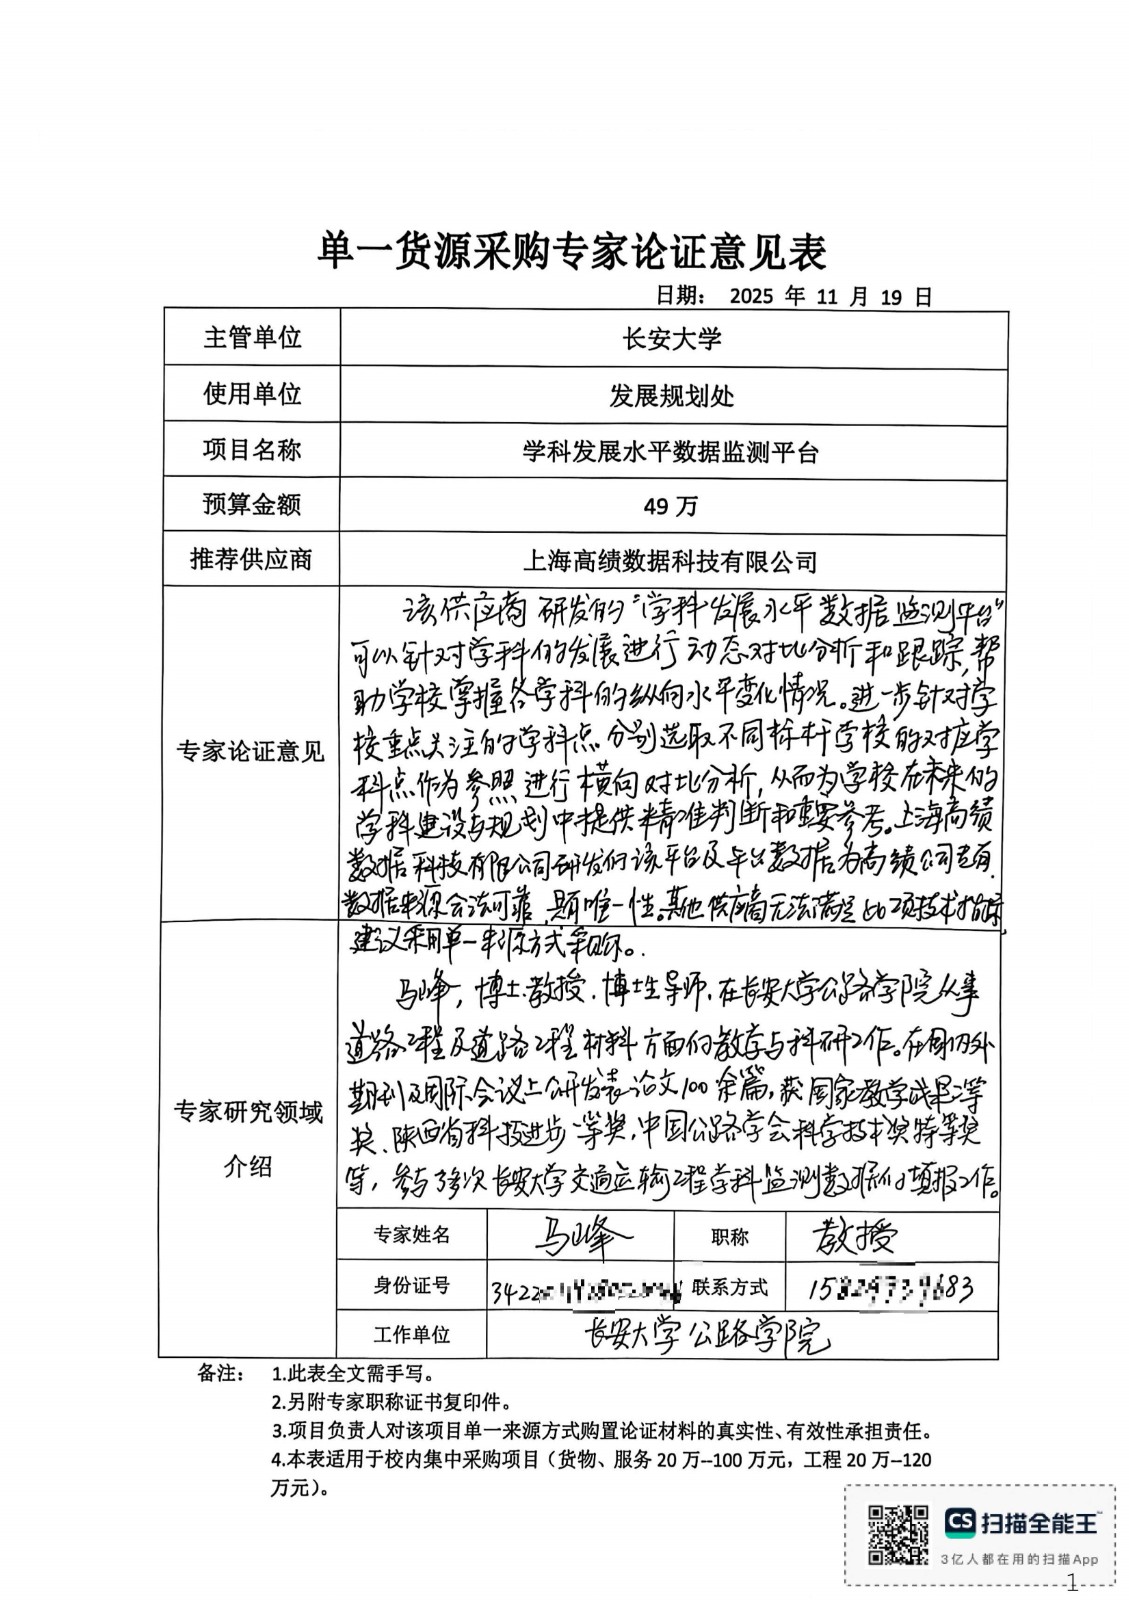 单一货源采购专家论证意见表
日期： 2025 年 11 月 19 日
主管单位 长安大学
使用单位 发展规划处
项目名称 学科发展水平数据监测平台
预算金额 49 万
推荐供应商 上海高绩数据科技有限公司
专家论证意见
该供应商研发的“学科发展水平数据监测平台”
可以针对学科的发展进行动态对比分析和跟踪,帮
助学校掌握各学科的纵向水平变化情况。进一步针对学
校重点关注的学科点分别选取不同标杆学校的对应学
科点作为参照进行横向对比分析,从而为学校在未来的
学科建设与规划中提供精准判断和重要参考。上海高绩
数据科技有限公司研发的该平台及平台数据为高绩公司专有,
数据来源合法可靠,具有唯一性。其他供应商无法满足此项技术指标,
建议采用单一来源方式采购。
专家研究领域
介绍
马峰,博士教授.博士生导师.在长安大学公路学院从事
道路工程及道路工程材料方面的教学与科研工作。在国内外
期刊及国际会议上公开发表论文100余篇,获国家教学成果二等
奖、陕西省科技进步一等奖,中国公路学会科学技术奖特等奖
等,参与了多次长安大学交通运输工程学科监测数据的填报工作。
专家姓名 马峰 职称 教授
身份证号 3422 联系方式 15 683
工作单位 长安大学公路学院
备注： 1.此表全文需手写。
2.另附专家职称证书复印件。
3.项目负责人对该项目单一来源方式购置论证材料的真实性、有效性承担责任。
4.本表适用于校内集中采购项目（货物、服务 20 万--100 万元，工程 20 万--120
万元）。
CS 扫描全能王
3亿人都在用的扫描App
1